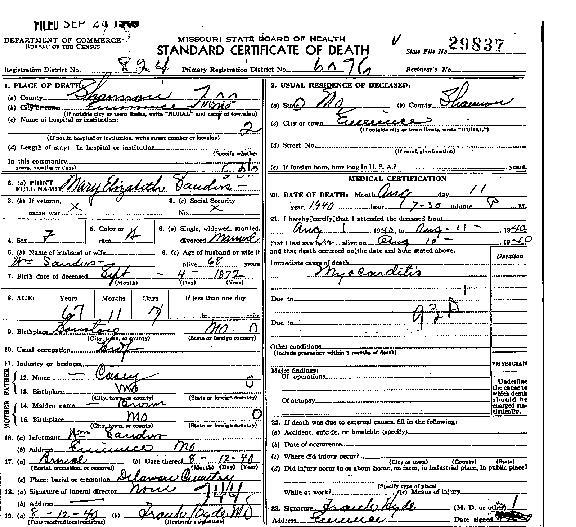 FILED SEP 24 1940
DEPARTMENT OF COMMERCE
BUREAU OF THE CENSUS
MISSOURI STATE BOARD OF HEALTH
STANDARD CERTIFICATE OF DEATH
State File No. 29837
Registration District No. 824 Primary Registration District No. 6076 Registrar's No.
1. PLACE OF DEATH:
(a) County Shannon
(b) City or town Eminence
(c) Name of hospital or institution:
(If not in hospital or institution, write street number or location)
(d) Length of stay: In hospital or institution
In this community
2. USUAL RESIDENCE OF DECEASED:
(a) State Mo (b) County Shannon
(c) City or town Eminence
(d) Street No.
(e) If foreign born, how long in U. S. A.? years
3. (a) PRINT FULL NAME Mary Elizabeth
3. (b) If veteran, name war X
3. (c) Social Security No. X
4. Sex F
5. Color or race W
6. (a) Single, widowed, married, divorced Married
6. (b) Name of husband or wife Wm
6. (c) Age of husband or wife if alive 68 years
7. Birth date of deceased Sept - 4 - 1872
(Month) (Day) (Year)
8. AGE: Years Months Days If less than one day
67 11 7
9. Birthplace Mo
(City, town, or county) (State or foreign country)
10. Usual occupation
11. Industry or business
FATHER
12. Name - Casey
13. Birthplace Mo
(City, town, or county) (State or foreign country)
MOTHER
14. Maiden name Brown
15. Birthplace Mo
(City, town, or county) (State or foreign country)
16. (a) Informant Wm
(b) Address Eminence Mo
17. (a) Burial (b) Date thereof 8-12-40
(Burial, cremation, or removal) (Month) (Day) (Year)
(c) Place: burial or cremation Delaware Cemetery
18. (a) Signature of funeral director None
(b) Address
19. (a) 8-12-40 (b) Frank Hyde MD
MEDICAL CERTIFICATION
20. DATE OF DEATH: Month Aug day 11
year 1940 hour 7-30 minute P M.
21. I hereby certify that I attended the deceased from
Aug 1 1940 to Aug-11- 1940
that I last saw alive on Aug 10- 1940
and that death occurred on the date and hour stated above.
Duration
Immediate cause of death
Myocarditis
Due to
Due to
Other conditions
(Include pregnancy within 3 months of death)
Major findings:
Of operations
Of autopsy
PHYSICIAN
Underline the cause to which death should be charged statistically.
22. If death was due to external causes, fill in the following:
(a) Accident, suicide, or homicide (specify)
(b) Date of occurrence
(c) Where did injury occur?
(City or town) (County) (State)
(d) Did injury occur in or about home, on farm, in industrial place, in public place?
(Specify type of place)
While at work? (e) Means of injury
23. Signature Frank Hyde (M. D. or
Address Eminence Date signed